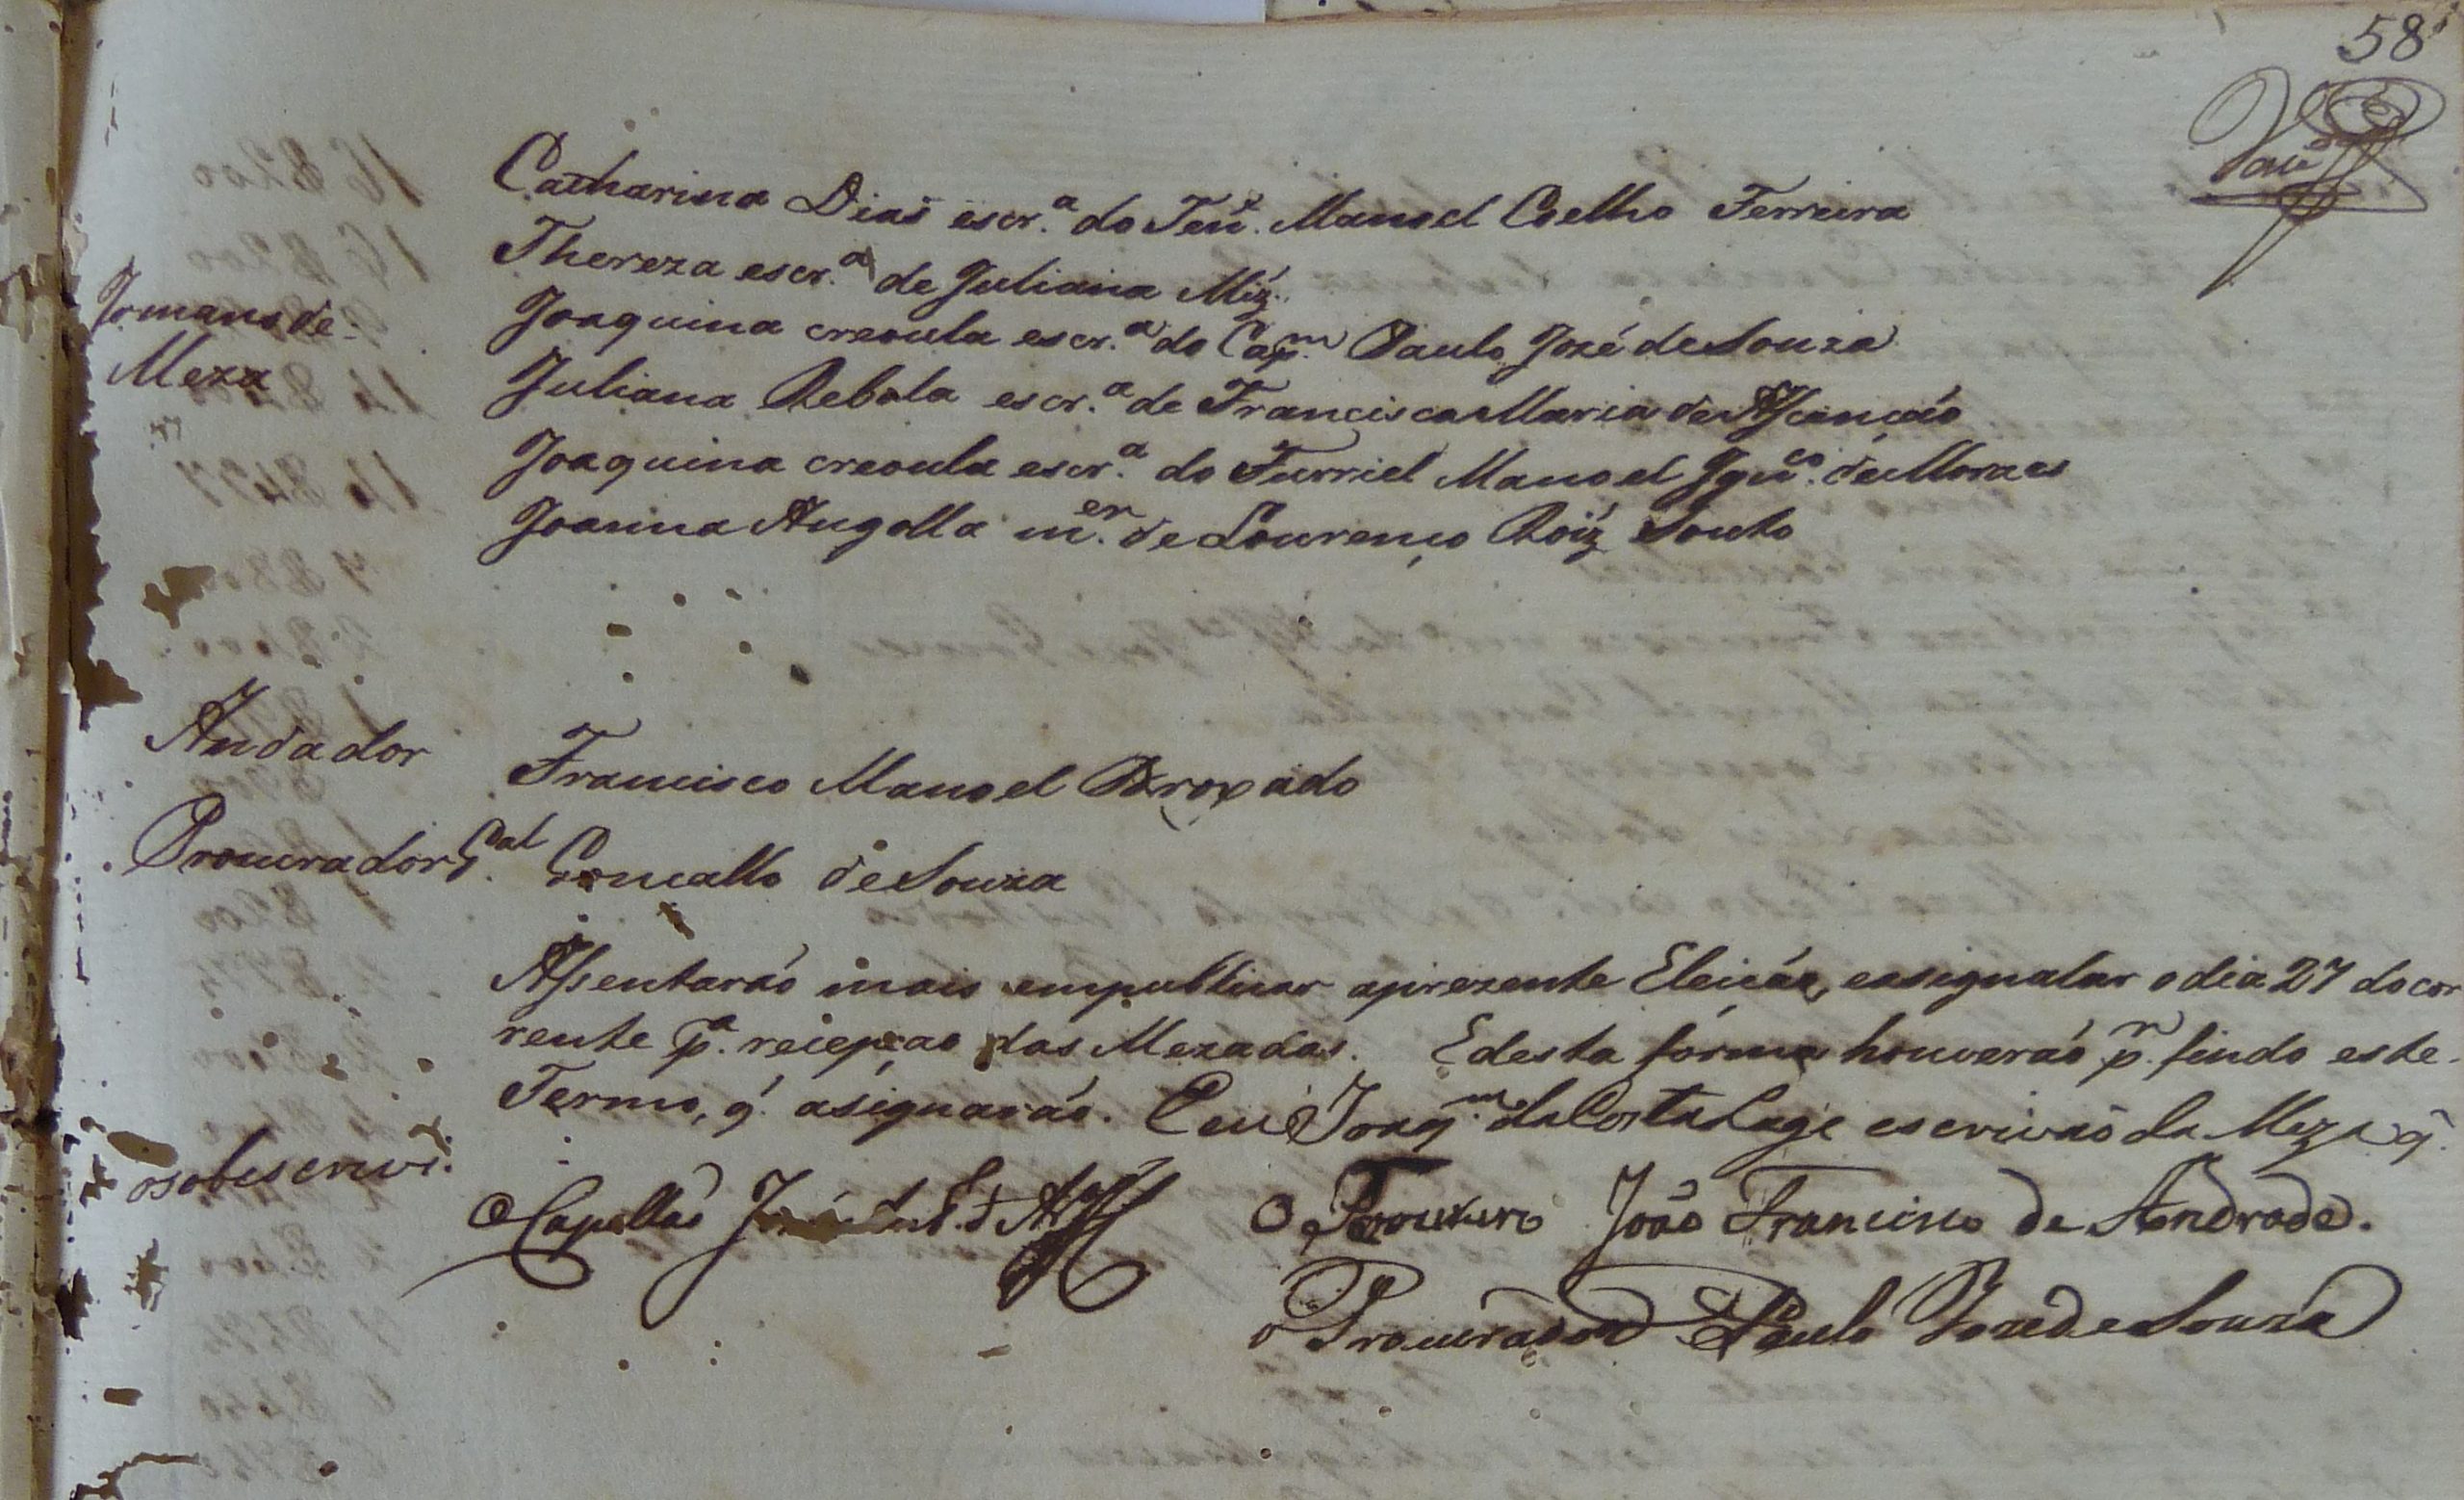 58
Catharina Dias escr.ª do Ten.e Manoel Coelho Ferreira
Thereza escr.ª de Juliana Miz.
Irmans de
Meza
Joaquina creoula escr.ª do Cap.m Paulo Jozé de Souza
Juliana Rebola escr.ª de Francisca Maria de Assenção
Joaquina creoula escr.ª do Furriel Manoel Ign.co de Moraes
Joanna Angolla m.er de Lourenço Roiz Souto
Andador Francisco Manoel
Procurador G.al Goncallo de Souza
Assentarão mais em publicar aprezente Eleição, e assignalar o dia 27 do cor
rente p.ª recepção das Mezadas. E desta forma houverão p.r findo este
Termo, q̃ asignarão. E eu Joaq.m da Costa Lage escrivão da Meza q̃
osobescrevi.
O Capellão
O Thezoureiro João Francisco de Andrade.
o Procurador Paulo Joze de Souza